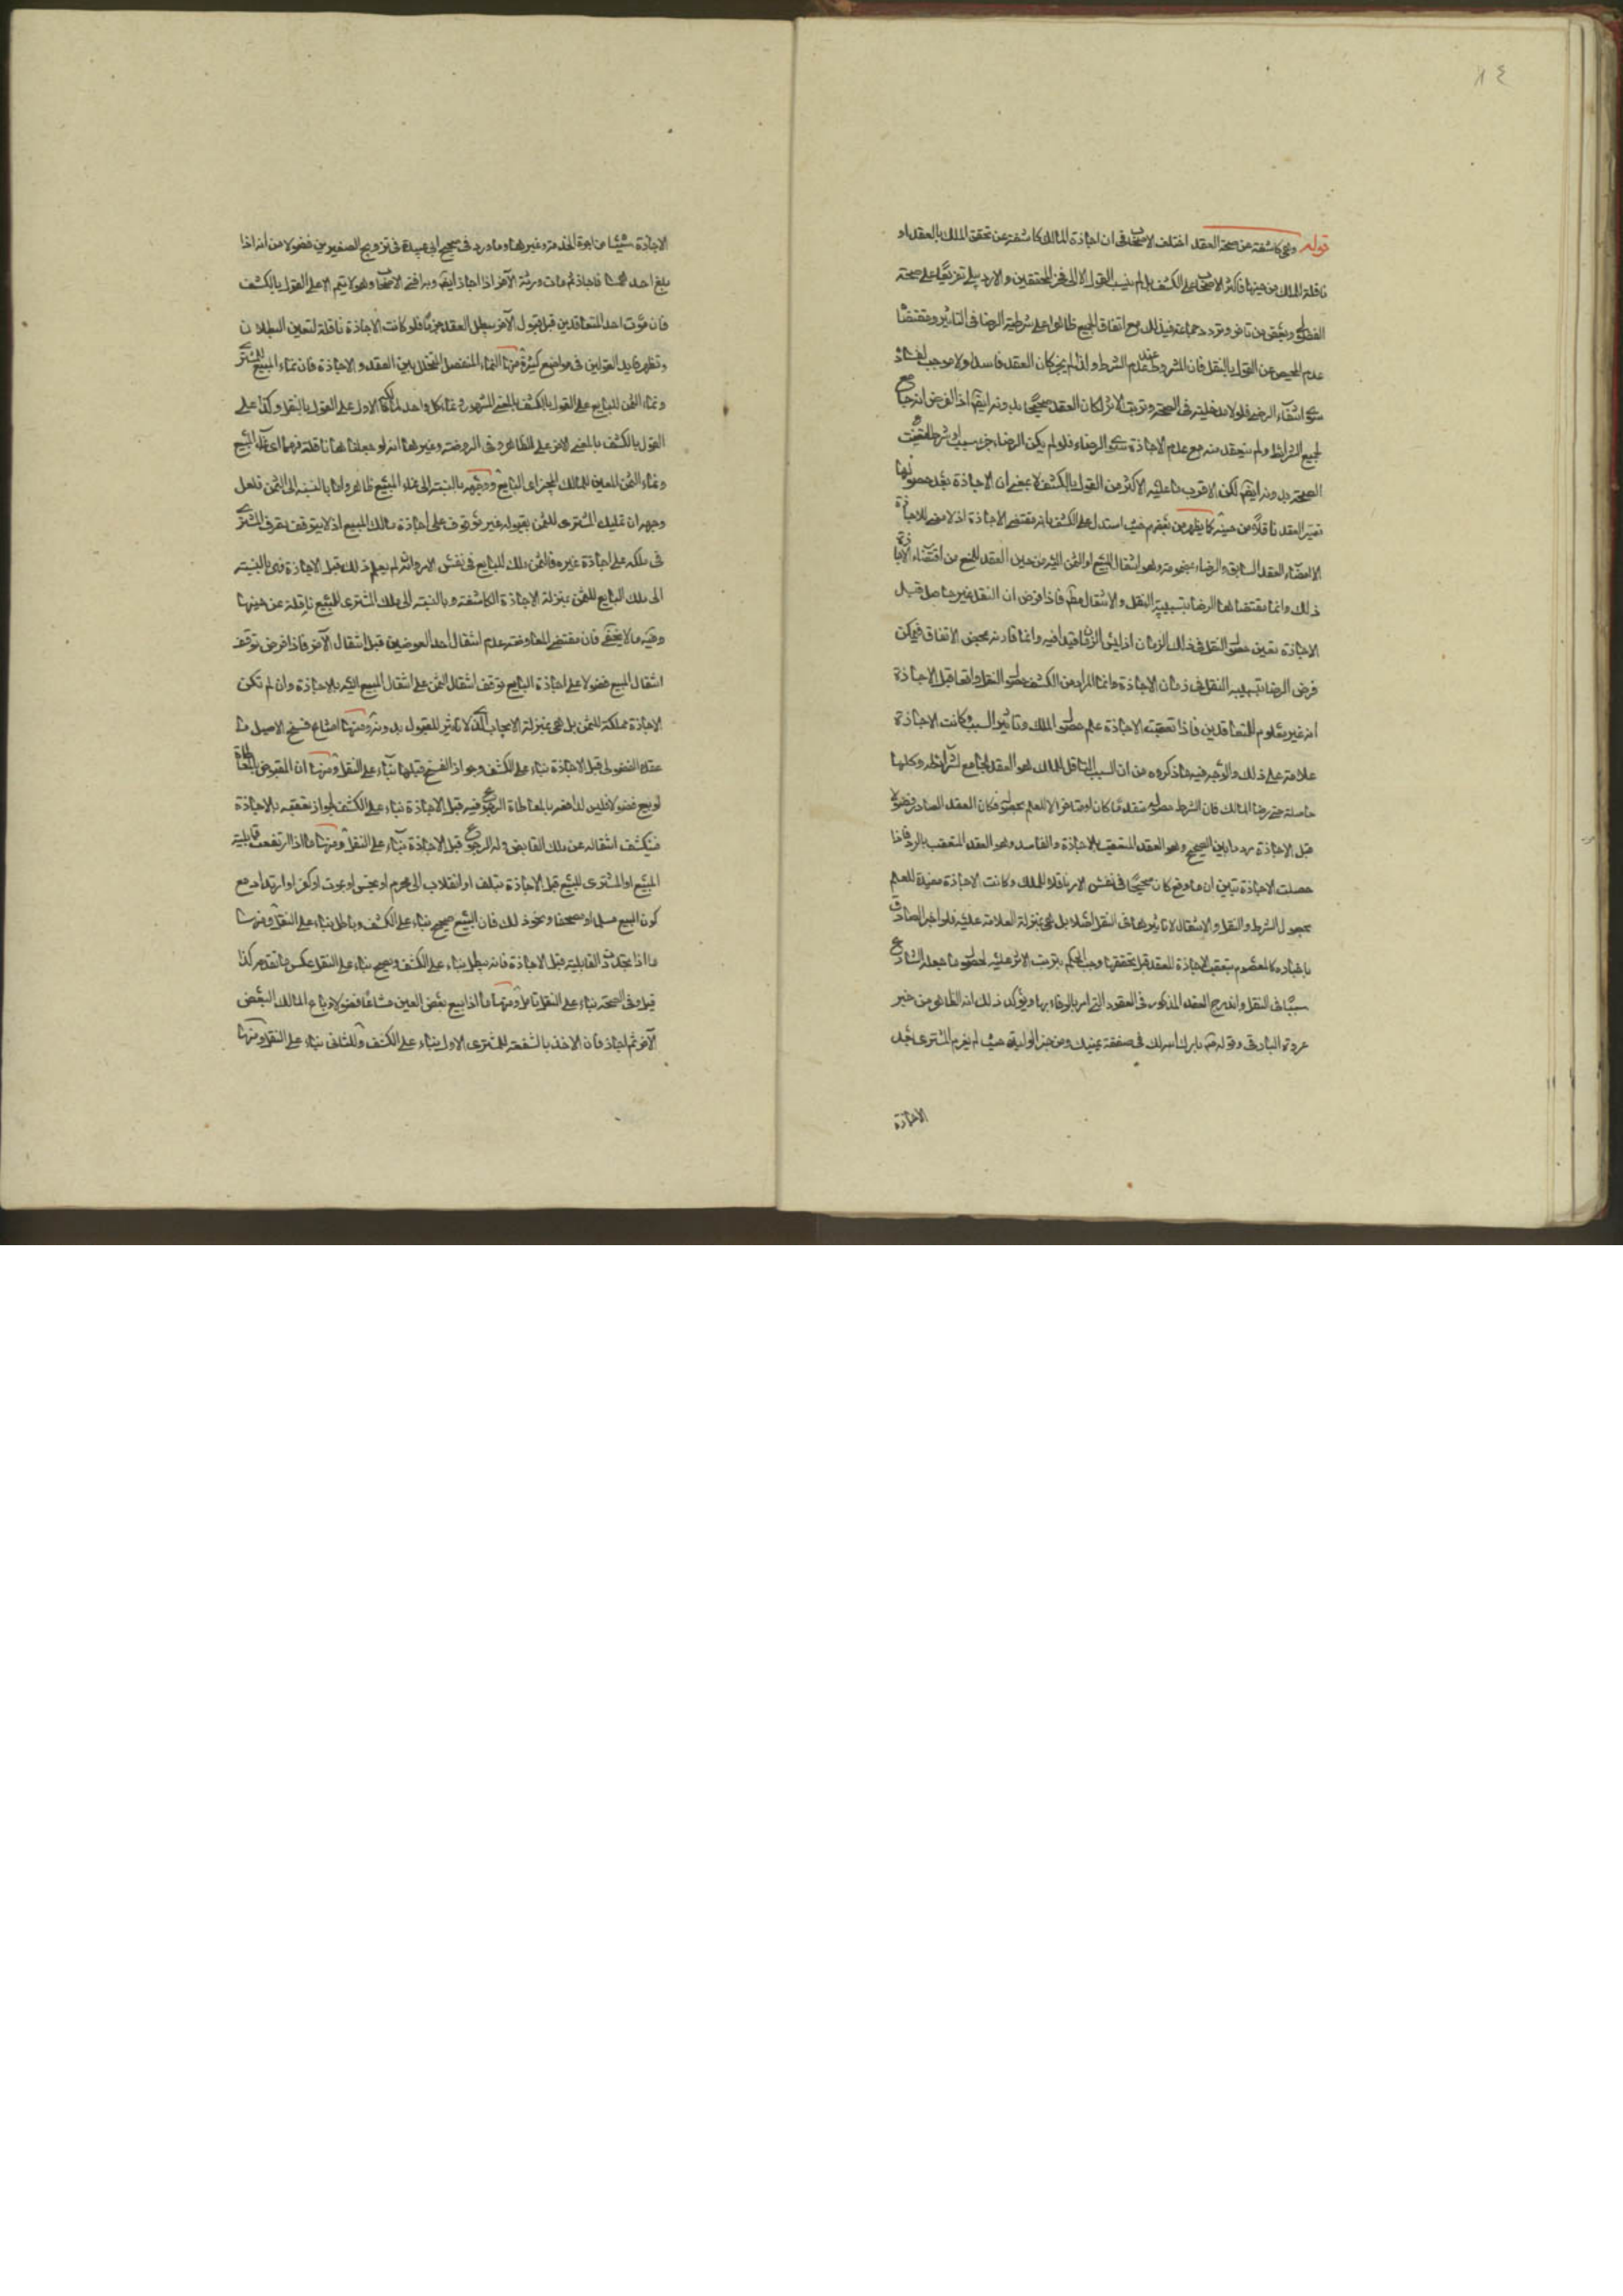 ٨٤
قوله وهي كاشفة عن صحة العقد اختلف الاصحاب في ان اجازة المالك كاشفة عن تحقق الملك بالعقد او
ناقلة للملك من حينها فاكثر الاصحاب على الكشف بل لم ينسب القول الا الى فخر المحققين والاردبيلي تفريعا على صحة
الفضولي وبعض من تاخر وتردد جماعة في ذلك مع اتفاق الجميع ظاهرا على شرطية الرضا في التاثير ومقتضاها
عدم المحيص عن القول بالنقل فان المشروط عدم عند عدم الشرط ولذا لم يجز كان العقد فاسدا ولا موجب لفساده
سوى انتفاء الرضى فلولا مدخليته في الصحة وترتب الاثر لكان العقد صحيحا بدونه ايضا اذ الفرض انه جامع
لجميع الشرائط ولم يفقد منه مع عدم الاجازة سوى الرضاء فلو لم يكن الرضاء جزء سبب او شرط لاقتضت
الصحة بدونه ايضا لكن الاقرب ما عليه الاكثر من القول بالكشف لا بمعنى ان الاجازة بعد حصولها
تصير العقد ناقلا من حينه كما يظهر من بعضهم حيث استدل على الكشف بانه مقتضى الاجازة اذ لا معنى للاجازة
الا امضاء العقد السابق والرضاء بمضمونه وهو انتقال المبيع او الثمن اليه من حين العقد للمنع من اقتضاء الاجازة
ذلك وانما مقتضاها الرضا بسببية النقل والانتقال فاذا فرض ان النقل غير حاصل قبل
الاجازة تعين حصول النقل في ذلك الزمان اذ ليس الزمان قيدا فيه وانما قارنه بمحض الاتفاق فيمكن
فرض الرضا بسببية النقل في زمان الاجازة وانما المراد من الكشف حصول النقل واقعا قبل الاجازة
انه غير معلوم للمتعاقدين فاذا تعقبته الاجازة علم حصول الملك وتاثير السبب وكانت الاجازة
علامة على ذلك والوجه فيه ما ذكروه من ان السبب الناقل للملك هو العقد الجامع لشرائطه وكلها
حاصلة حتى رضا المالك فان الشرط حصوله متقدما كان او متاخرا لا للعلم بحصوله فكان العقد الصادر فضولا
قبل الاجازة مرددا بين الصحيح وهو العقد المتعقب بالاجازة والفاسد وهو العقد المتعقب بالرد فاذا
حصلت الاجازة تبين ان ما وقع كان صحيحا في نفس الامر ناقلا للملك وكانت الاجازة مفيدة للعلم
بحصول الشرط والنقل والانتقال لا تاثير لها في النقل اصلا بل هي بمنزلة العلامة عليه فلو اخبر الصادق
باخباره كالمعصوم بتعقب الاجازة للعقد قبل تحققها وجب الحكم بترتب الاثر عليه لحصول ما جعله الشارع
سببا في النقل واندرج العقد المذكور في العقود التي امر بالوفاء بها ويؤكد ذلك انه الظاهر من خبر
عروة البارقي وقوله فيه بارك الله لك في صفقة يمينك ومن خبر الوليدة حيث لم يغرم المشتري قبل
الاجازة
الاجازة شيئا من اجرة الخدمة وغيرها وما ورد في صحيح ابي عبيدة في تزويج الصغيرين فضولا من انه اذا
بلغ احدهما فاجاز ثم مات ورثه الآخر اذا اجاز ايضا وبه افتى الاصحاب وهو لا يتم الا على القول بالكشف
فان موت احد المتعاقدين قبل قبول الآخر يبطل العقد جزما فلو كانت الاجازة ناقلة لتعين البطلان
وتظهر فايدة القولين في مواضع كثيرة منها النماء المنفصل المتخلل بين العقد والاجازة فان نماء المبيع للمشتري
ونماء الثمن للبايع على القول بالكشف بالمعنى المشهور ونماء كل واحد لمالكه الاول على القول بالنقل وكذا على
القول بالكشف بالمعنى الاخر على الظاهر وفي الروضة وغيرها انه لو جعلناها ناقلة فهما اي نماء المبيع
ونماء الثمن المعين للمالك المجيز اي البايع ووجهه بالنسبة الى نماء المبيع ظاهر واما بالنسبة الى الثمن فلعل
وجهه ان تمليك المشتري للثمن بقبوله غير موقوف على اجازة مالك المبيع اذ لا يتوقف تصرف المشتري
في ملكه على اجازة غيره فالثمن ملك للبايع في نفس الامر وان لم يعلم ذلك قبل الاجازة فهي بالنسبة
الى ملك البايع للثمن بمنزلة الاجازة الكاشفة وبالنسبة الى ملك المشتري للمبيع ناقلة من حينها
وفيه ما لا يخفى فان مقتضى المعاوضة عدم انتقال احد العوضين قبل انتقال الآخر فاذا فرض توقف
انتقال المبيع فضولا على اجازة البايع توقف انتقال الثمن على انتقال المبيع اليه بالاجازة وان لم تكن
الاجازة مملكة للثمن بل هي بمنزلة الايجاب الذي لا تاثير للقبول بدونه ومنها امتناع فسخ الاصيل ما
عقده الفضولي قبل الاجازة بناء على الكشف وجواز الفسخ قبلها بناء على النقل ومنها ان المقبوض بالمعاطاة
لو بيع فضولا فليس لدافعه بالمعاطاة الرجوع فيه قبل الاجازة بناء على الكشف لجواز تعقبه بالاجازة
فيكشف انتقاله عن ملك القابض وله الرجوع قبل الاجازة بناء على النقل ومنها ما اذا ارتفعت قابلية
المبيع او المشتري للبيع قبل الاجازة بتلف او انقلاب الى محرم او نجس او بموت او كفر او ارتداد مع
كون المبيع مسلما او مصحفا ونحو ذلك فان البيع صحيح بناء على الكشف وباطل بناء على النقل ومنها
ما اذا تجددت القابلية قبل الاجازة فانه يبطل بناء على الكشف ويصح بناء على النقل عكس ما تقدم كذا
قيل وفي الصحة بناء على النقل تامل ومنها ما اذا بيع بعض العين مشاعا فضولا وباع المالك البعض
الآخر ثم اجاز فان الاخذ بالشفعة للمشتري الاول بناء على الكشف وللثاني بناء على النقل ومنها